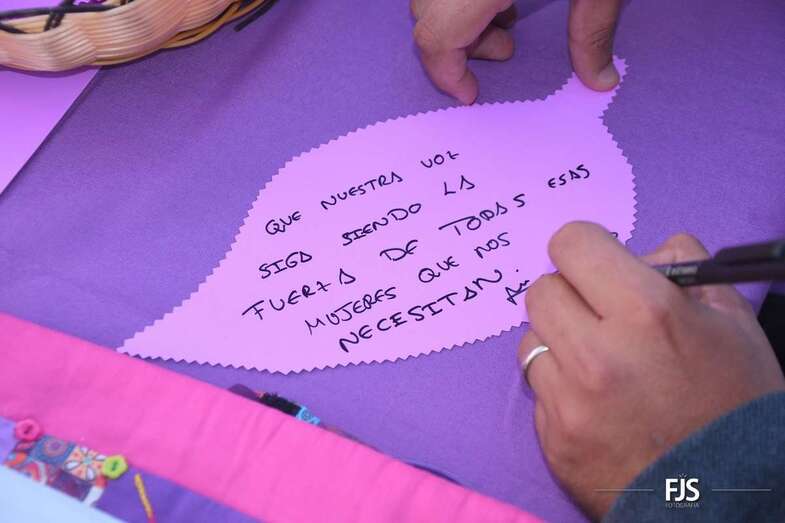 QUE NUESTRA VOZ
SIGA SIENDO LA
FUERZA DE TODAS ESAS
MUJERES QUE NOS
NECESITAN.
FJS
FOTOGRAFIA